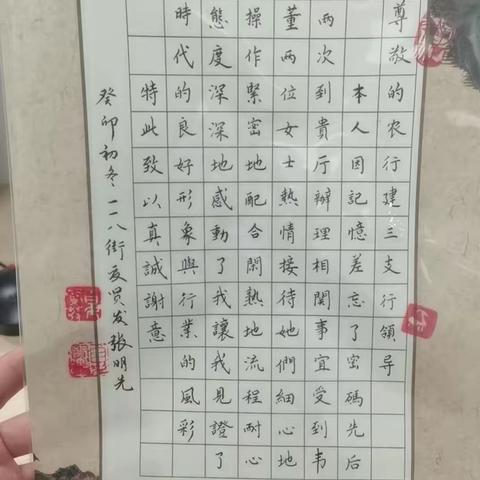 尊敬的农行建三支行領导
本人因記憶差忘了密碼先后
两次到貴厅辦理相関事宜受到韦
董两位女士熱情接待她們細心地
操作緊密地配合閑熱地流程耐心
態度深深地感動了我讓我見證了
時代的良好形象與行業的風彩
特此致以真誠謝意
癸卯初冬一一八街友贤发張明先